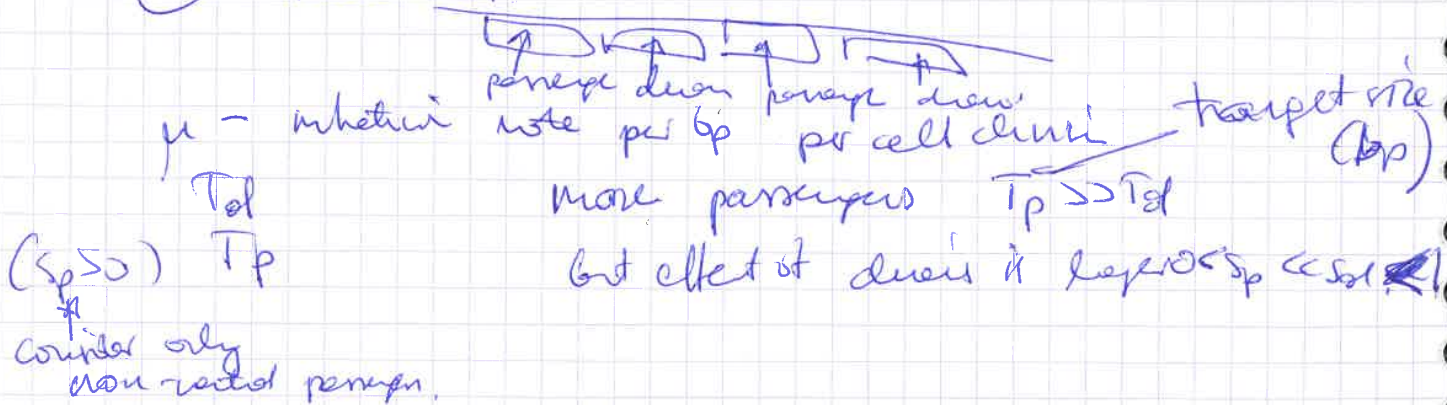 passenger driver passenger driver
μ - mutation rate per bp per cell division
target size
(bp)
Td more passengers Tp >> Td
(sp>0) Tp but effect of drivers is larger 0<sp << sd
consider only
non-neutral passengers.